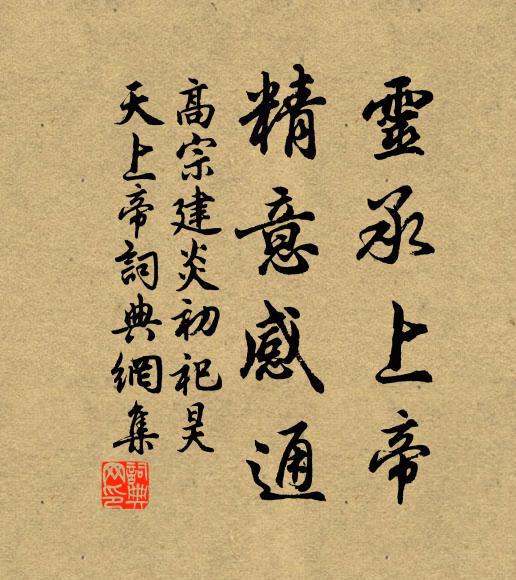 靈承上帝
精意感通
高宗建炎初祀昊
天上帝詞典網集
詞典
网印